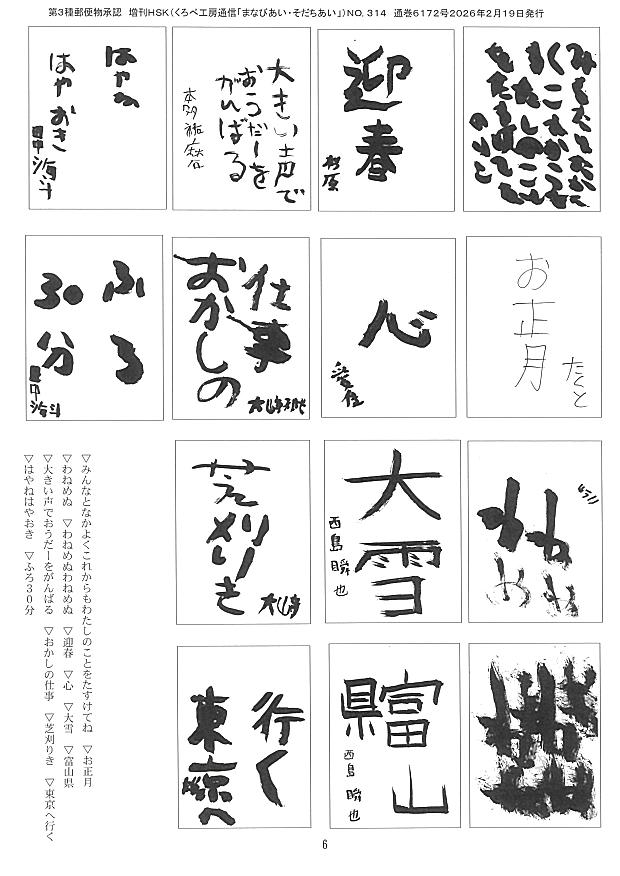 第3種郵便物承認　増刊HSK（くろべ工房通信「まなびあい・そだちあい」）NO. 314　通巻6172号2026年2月19日発行
みんなとなかよ
くこれからも
わたしのこと
をたすけてね
のりこ
迎春
杉原
大きい声で
おうだーを
がんばる
はやね
はやおき
田中
お正月
たくと
心
仕事
おかしの
ふろ
30分
田中
大雪
西島瞬也
芝刈りき
富山
県
西島瞬也
行く
東京へ
▽みんなとなかよくこれからもわたしのことをたすけてね　▽お正月
▽わねめぬ　▽わねめぬわねめぬ　▽迎春　▽心　▽大雪　▽富山県
▽大きい声でおうだーをがんばる　▽おかしの仕事　▽芝刈りき　▽東京へ行く
▽はやねはやおき　▽ふろ30分
6